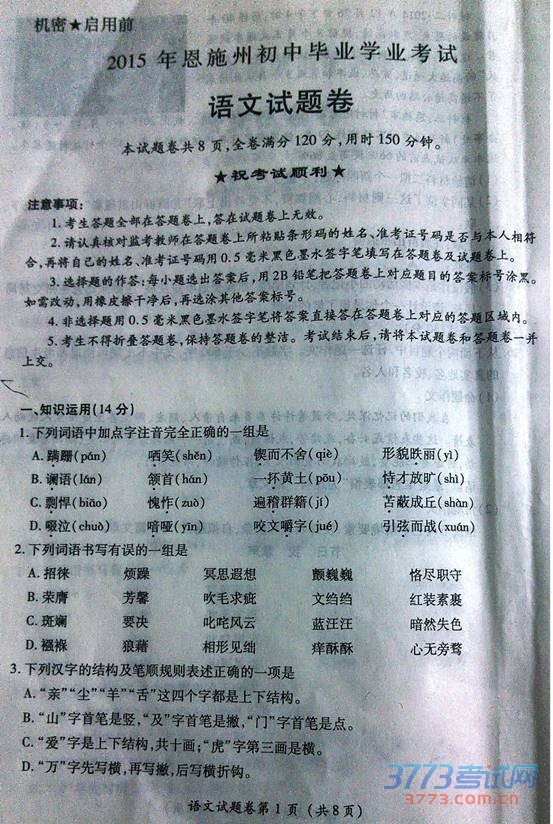 机密★启用前
2015年恩施州初中毕业学业考试
语文试题卷
本试题卷共8页,全卷满分120分,用时150分钟。
★祝考试顺利★
注意事项:
1.考生答题全部在答题卷上,答在试题卷上无效。
2.请认真核对监考教师在答题卷上所粘贴条形码的姓名、准考证号码是否与本人相符
合,再将自己的姓名、准考证号码用0.5毫米黑色墨水签字笔填写在答题卷及试题卷上。
3.选择题的作答:每小题选出答案后,用2B铅笔把答题卷上对应题目的答案标号涂黑。
如需改动,用橡皮擦干净后,再选涂其他答案标号。
4.非选择题用0.5毫米黑色墨水签字笔将答案直接答在答题卷上对应的答题区域内。
5.考生不得折叠答题卷,保持答题卷的整洁。考试结束后,请将本试题卷和答题卷一并
上交。
一、知识运用(14分)
1.下列词语中加点字注音完全正确的一组是
A.蹒跚(pán) 哂笑(shěn) 锲而不舍(qiè) 形貌昳丽(yì)
B.谰语(lán) 颔首(hán) 一抔黄土(pōu) 恃才放旷(shì)
C.剽悍(biāo) 愧怍(zuò) 遍稽群籍(jí) 苫蔽成丘(shàn)
D.啜泣(chuò) 喑哑(yīn) 咬文嚼字(jué) 引弦而战(xuán)
2.下列词语书写有误的一组是
A.招徕 烦躁 冥思遐想 颤巍巍 恪尽职守
B.荣膺 芳馨 吹毛求疵 文绉绉 红装素裹
C.斑斓 要决 叱咤风云 蓝汪汪 暗然失色
D.襁褓 狼藉 相形见绌 痒酥酥 心无旁骛
3.下列汉字的结构及笔顺规则表述正确的一项是
A.“亲”“尘”“羊”“舌”这四个字都是上下结构。
B.“山”字首笔是竖,“及”字首笔是撇,“门”字首笔是点。
C.“爱”字是上下结构,共十画;“虎”字第三画是横。
D.“万”字先写横,再写撇,后写横折钩。
语文试题卷第1页(共8页)
3773考试网
3773.com.cn